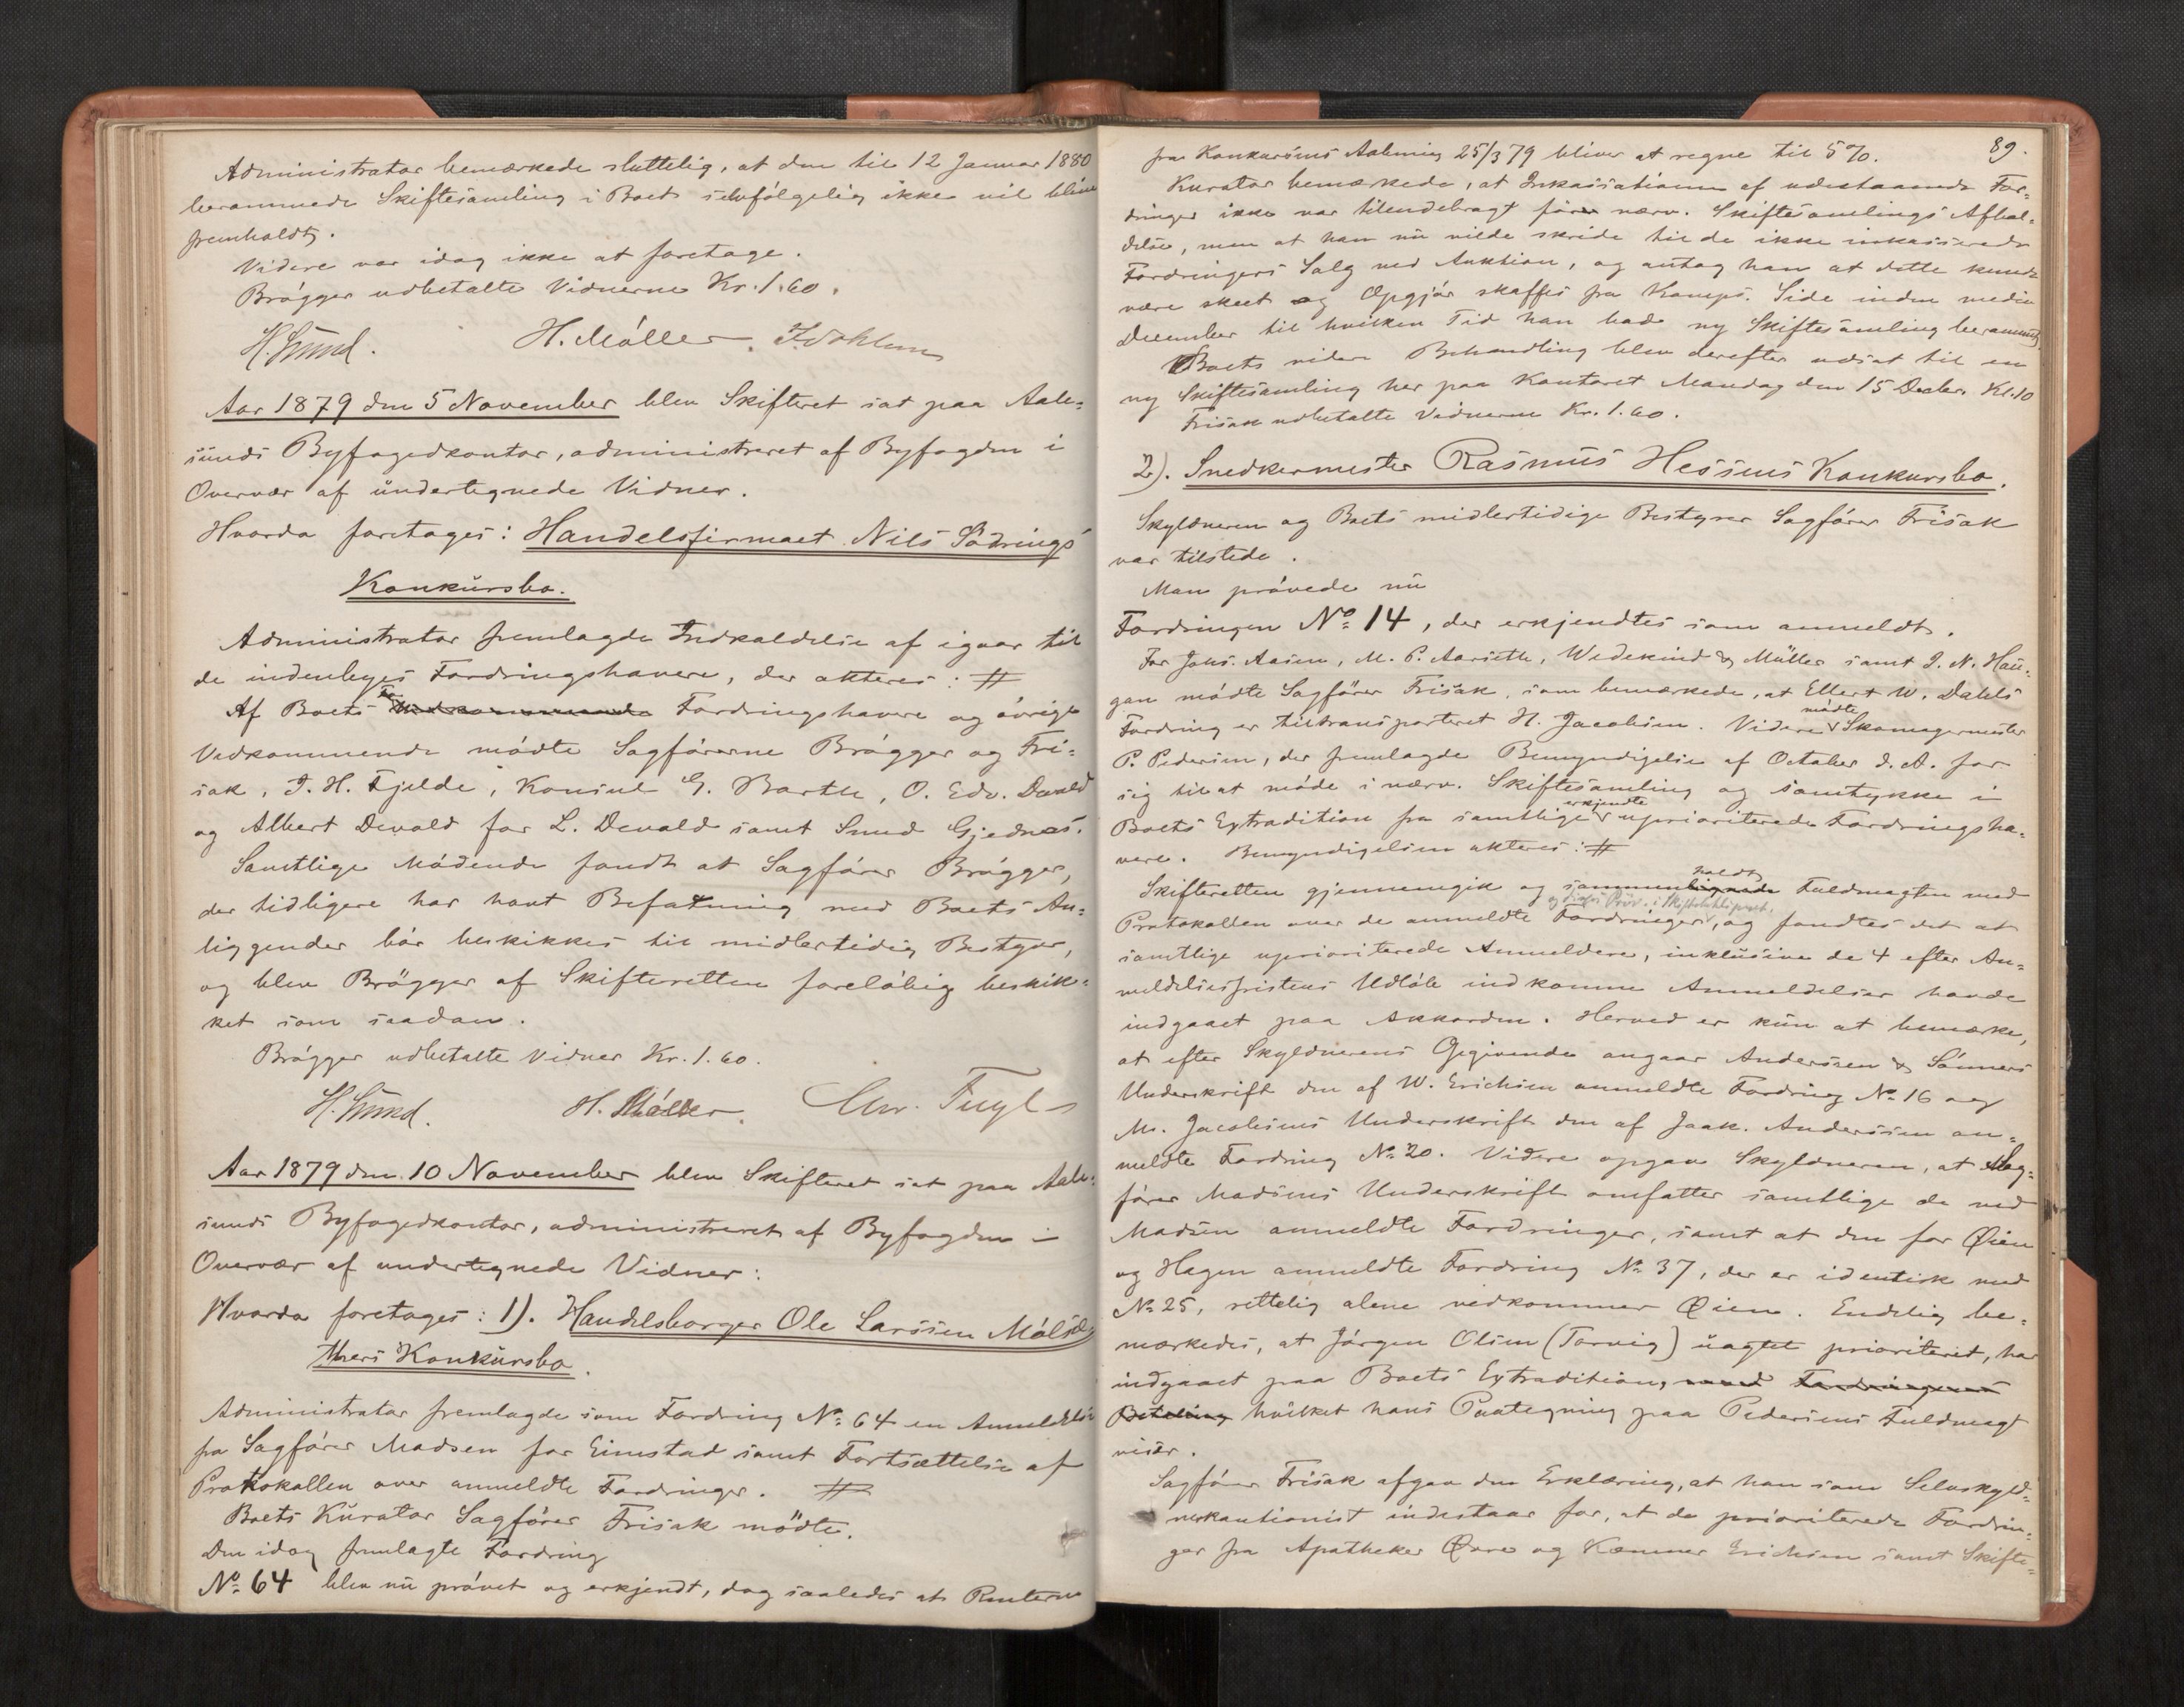 Administrator bemærkede sluttelig, at den til 12 Januar 1880
berammede Skiftesamling i Boet selvfølgelig ikke vil blive
fremholdt.
Videre var idag ikke at foretage.
Brøgger udbetalte Vidnerne Kr. 1.60.
H. Møller.
Aar 1879 den 5 November blev Skifteret sat paa Aale=
sunds Byfogedkontor, administreret af Byfogden i
Overvær af undertegnede Vidner.
Hvorda foretages: Handelsfirmaet Nils Sødrings
Konkursbo.
Administrator fremlagde Indkaldelse af igaar til
de indenbyes Fordringshavere, der akteres: #
Af Boets Fordringshavere og øvrige
Vedkommende mødte Sagførerne Brøgger og Fri=
sak, J. H. Fjelde, Konsul G. Barth, O. Edv. Devold
og Albert Devold for L. Devold samt Smed Gjednæs.
Samtlige Mødende fandt at Sagfører Brøgger,
der tidligere har havt Befatning med Boets An=
liggender bør beskikkes til midlertidig Bestyrer,
og blev Brøgger af Skifteretten foreløbig beskik=
ket som saadan.
Brøgger udbetalte Vidner Kr. 1.60.
H. Møller.
Aar 1879 den 10 November blev Skifteret sat paa Aale=
sunds Byfogedkontor, administreret af Byfogden i
Overvær af undertegnede Vidner:
Hvorda foretages: 1). Handelsborger Ole Larssen Molsæ
thers Konkursbo.
Administrator fremlagde som Fordring No 64 en Anmeldelse
fra Sagfører Madsen for Eimstad samt Fortsættelse af
Protokollen over anmeldte Fordringer. #
Boets Kurator Sagfører Frisak mødte.
Den idag fremlagte Fordring
No 64 blev nu prøvet og erkjendt, dog saaledes at Renterne
89.
fra Konkursens Aabning 25/3 79 bliver at regne til 5%.
Kurator bemærkede, at Inkassationen af udestaaende For=
dringer ikke var tilendebragt før nærv. Skiftesamlings Afhol=
delse, men at han nu vilde skride til de ikke inkasserede
Fordringers Salg ved Auktion, og antog han at dette kunde
være skeet og Opgjør skaffes fra Komps. Side inden medio
December til hvilken Tid han bad ny Skiftesamling berammet.
Boets videre Behandling blev derefter udsat til en
ny Skiftesamling her paa Kontoret Mandag den 15 Decbr. Kl. 10
Frisak udbetalte Vidnerne Kr. 1.60.
2). Snedkermester Rasmus Hessens Konkursbo.
Skyldneren og Boets midlertidige Bestyrer Sagfører Frisak
var tilstede.
Man prøvede nu
Fordringen No 14, der erkjendtes som anmeldt.
For Johs. Aasen, M. P. Aarseth, Wedekind & Müller samt J. N. Hau=
gan mødte Sagfører Frisak, som bemærkede, at Ellert W. Dahls
Fordring er tiltransporteret H. Jacobsen. Videre mødte Skomagermester
P. Pedersen, der fremlagde Bemyndigelse af October d. A. for
sig til at møde i nærv. Skiftesamling og samtykke i
Boets Extradition fra samtlige erkjendte uprioriterede Fordringsha=
vere. Bemyndigelsen akteres: #
Skifteretten gjennemgik og sammenholdt Fuldmagten med
Protokollen over de anmeldte Fordringer, og fandtes det at
samtlige uprioriterede Anmeldere, inklusive de 4 efter An=
meldelsesfristens Udløb indkomne Anmeldelser havde
indgaaet paa Akkorden. Herved er kun at bemærke,
at efter Skyldnerens Opgivende angaar Anderssen & Sønners
Underskrift den af W. Erichsen anmeldte Fordring No 16 og
M. Jacobsens Underskrift den af Jaak. Anderssen an=
meldte Fordring No 20. Videre opgav Skyldneren, at Sag=
fører Madsens Underskrift omfatter samtlige de ved
Madsen anmeldte Fordringer, samt at den for Øien
og Hagen anmeldte Fordring No 37, der er identisk med
No 25, rettelig alene vedkommer Øien. Endelig be=
mærkedes, at Jørgen Olsen (Torvig) uagtet prioriteret, har
indgaaet paa Boets Extradition, med Fordringens
Betaling hvilket hans Paategning paa Pedersens Fuldmagt
viser.
Sagfører Frisak afgav den Erklæring, at han som Selvskyld=
nerkautionist indestaar for, at de prioriterede Fordrin=
ger fra Apotheker Øvre og Kæmner Erichsen samt Skifte=